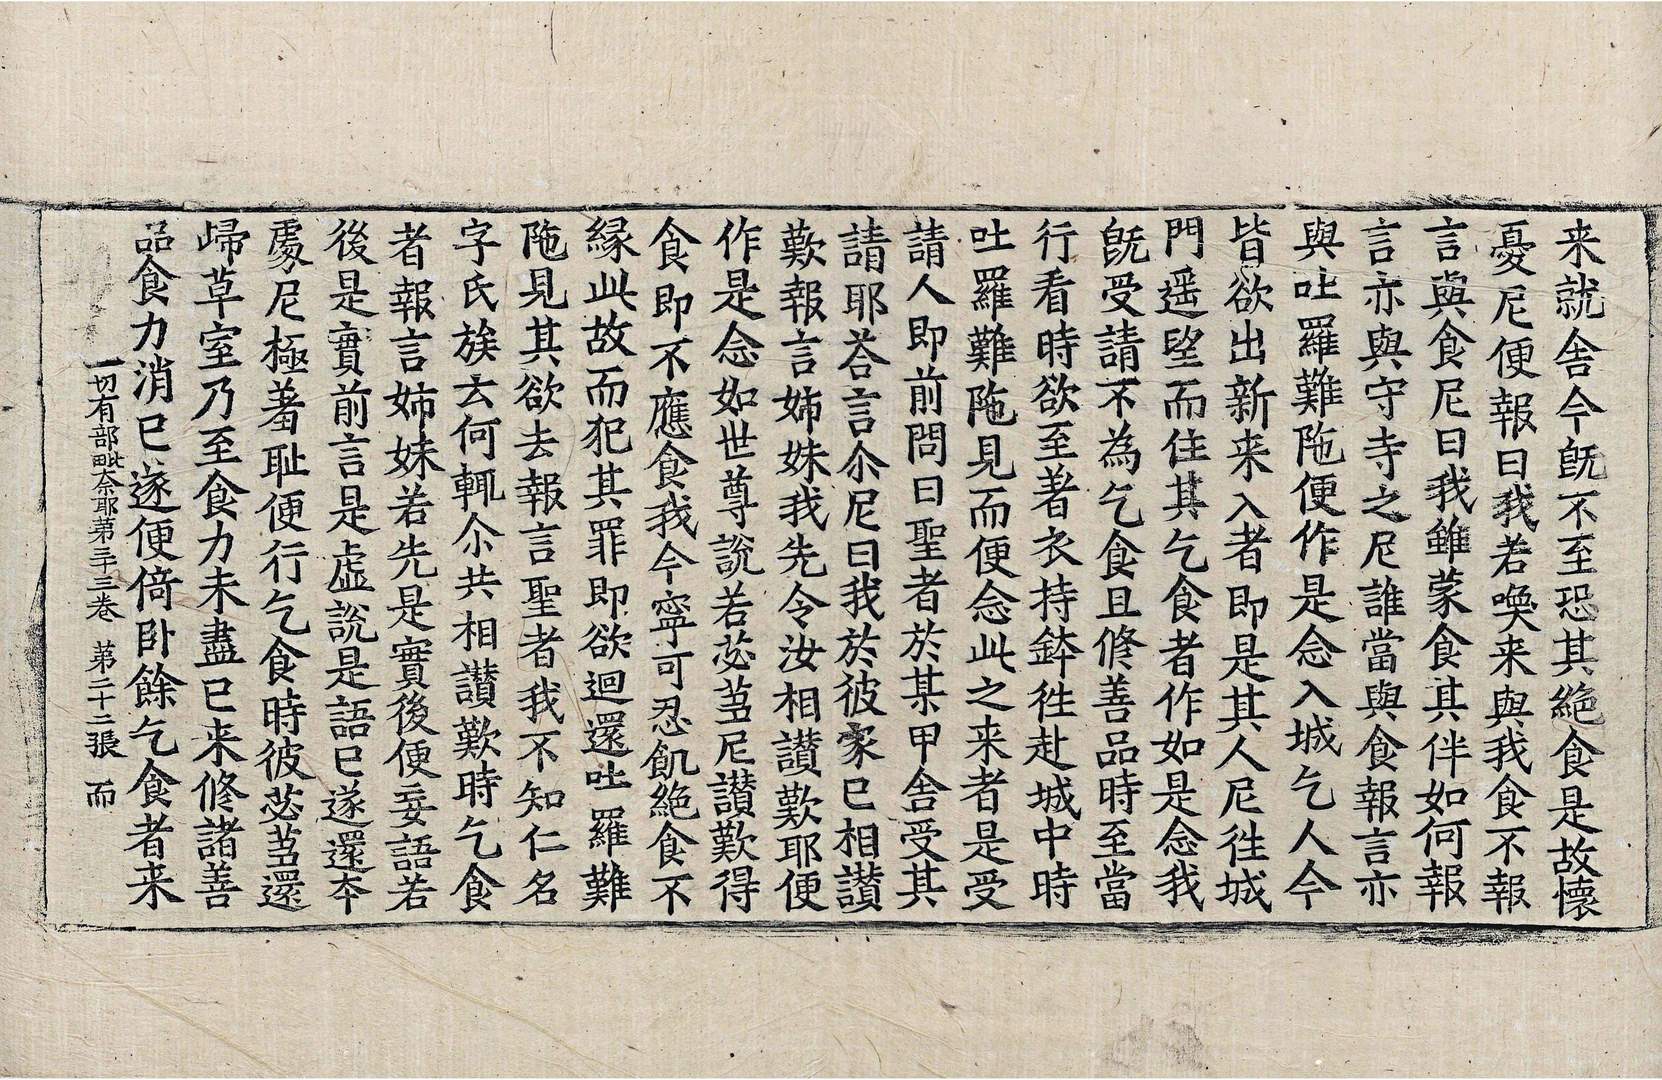 来就舍今旣不至恐其絶食是故懷
憂尼便報曰我若喚来與我食不報
言與食尼曰我雖蒙食其伴如何報
言亦與守寺之尼誰當與食報言亦
與吐羅難陁便作是念入城乞人今
皆欲出新来入者即是其人尼徃城
門遥望而住其乞食者作如是念我
旣受請不為乞食且修善品時至當
行看時欲至著衣持鉢徃赴城中時
吐羅難陁見而便念此之来者是受
請人即前問曰聖者於某甲舍受其
請耶荅言尒尼曰我於彼家已相讃
歎報言姊妹我先令汝相讃歎耶便
作是念如世尊說若苾芻尼讃歎得
食即不應食我今寧可忍飢絶食不
緣此故而犯其罪即欲迴還吐羅難
陁見其欲去報言聖者我不知仁名
字氏族云何輒尒共相讃歎時乞食
者報言姊妹若先是實後便妄語若
後是實前言是虛說是語已遂還本
處尼極羞耻便行乞食時彼苾芻還
歸草室乃至食力未盡已来修諸善
品食力消已遂便倚卧餘乞食者来
一切有部毗奈耶第三十三卷 第二十二張 而